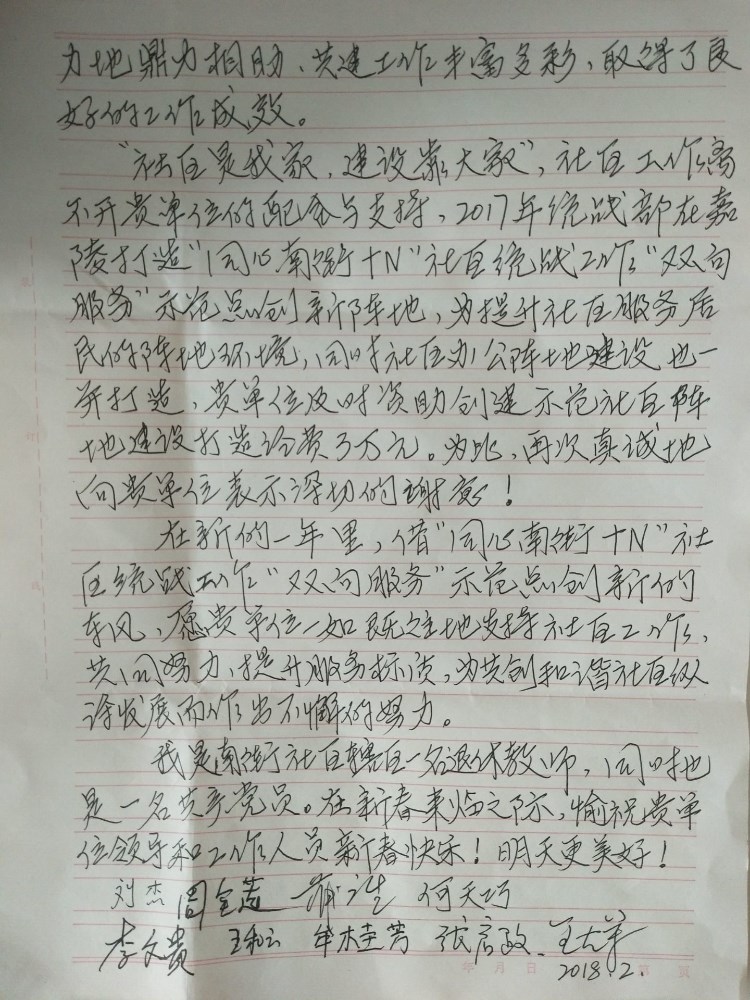 力地鼎力相助、共建工作丰富多彩，取得了良
好的工作成效。
“社区是我家，建设靠大家”，社区工作离
不开贵单位的配合与支持，2017年统战部在嘉
陵打造“同心南街+N”社区统战工作“双向
服务”示范点创新阵地，为提升社区服务居
民的阵地环境，同时社区办公阵地建设也一
并打造，贵单位及时资助创建示范社区阵
地建设打造经费3万元。为此，再次真诚地
向贵单位表示深切的谢意！
在新的一年里，借“同心南街+N”社
区统战工作“双向服务”示范点创新的
东风，愿贵单位一如既往地支持社区工作，
共同努力，提升服务标准，为共创和谐社区纵
深发展而作出不懈的努力。
我是南街社区辖区一名退休教师，同时也
是一名共产党员。在新春来临之际，愉祝贵单
位领导和工作人员新春快乐！明天更美好！
刘杰 何天巧
李文贵 王和云 牟桂芳 张启政
2018.2.
年 月 日 第 页